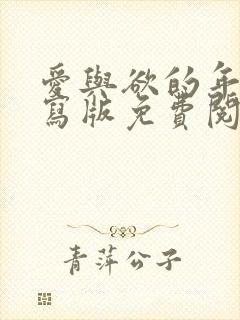 愛與欲的年
寫版免費閱
青萍公子